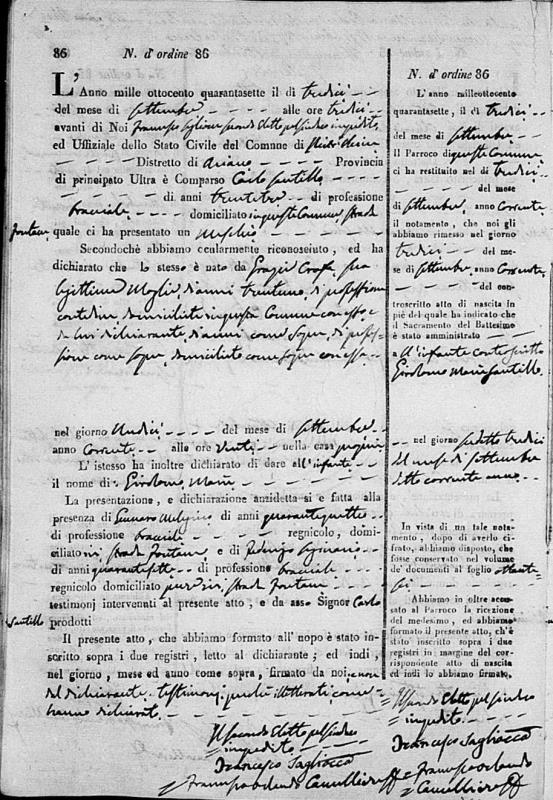 86 N. d'ordine 86
L'Anno mille ottocento quarantasette il dì tredici
del mese di settembre alle ore tredici
avanti di Noi Francesco secondo Eletto pel Sindaco impedito
ed Uffiziale dello Stato Civile del Comune di
Distretto di Ariano Provincia
di principato Ultra è Comparso Carlo Santillo
di anni trentatre di professione
bracciale domiciliato in questo Comune strada
Fontana quale ci ha presentato un maschio
Secondochè abbiamo ocularmente riconosciuto, ed ha
dichiarato che lo stesso è nato da Grazia sua
legittima Moglie, di anni trentuno, di professione
contadina domiciliata in questo Comune con esso e
da lui dichiarante, di anni come sopra, di profes-
sione come sopra, domiciliato come sopra con essa
nel giorno Undici del mese di settembre
anno Corrente alle ore venti nella casa propria
L' istesso ha inoltre dichiarato di dare all'infante
il nome di Girolomo Maria
La presentazione, e dichiarazione anzidetta si e fatta alla
presenza di Gennaro di anni
di professione bracciale regnicolo, domi-
ciliato ivi strada Fontana e di
di anni quarantasette di professione bracciale
regnicolo domiciliato pure ivi, strada Fontana
testimonj intervenuti al presente atto, e da esso Signor Carlo
Santillo prodotti
Il presente atto, che abbiamo formato all' uopo è stato in-
scritto sopra i due registri, letto al dichiarante; ed indi,
nel giorno, mese ed anno come sopra, firmato da noi, e non
dal dichiarante, testimonj, perchè illetterati, come
hanno dichiarato
Il secondo Eletto pel Sindaco
impedito
Francesco
Camillo
N. d'ordine 86
L' anno milleottocento
quarantasette, il dì tredici
del mese di settembre
Il Parroco di questo Comune
ci ha restituito nel dì tredici
del mese
di settembre, anno Corrente
il notamento, che noi gli
abbiamo rimesso nel giorno
tredici del me-
se di settembre, anno Corrente,
del con-
troscritto atto di nascita in
piè del quale ha indicato che
il Sacramento del Battesimo
è stato amministrato
All'infante controscritto
Girolomo Maria Santillo
nel giorno sudetto tredici
del mese di settembre
detto corrente anno
In vista di un tale nota-
mento, dopo di averlo ci-
frato, abbiamo disposto, che
fosse conservato nel volume
de' documenti al foglio ottanta-
sei
Abbiamo in oltre accu-
sato al Parroco la ricezione
del medesimo, ed abbiamo
formato il presente atto, ch'è
stato inscritto sopra i due
registri in margine del cor-
rispondente atto di nascita
ed indi lo abbiamo firmato,
Il secondo Eletto pel Sindaco
impedito
Francesco
Camillo